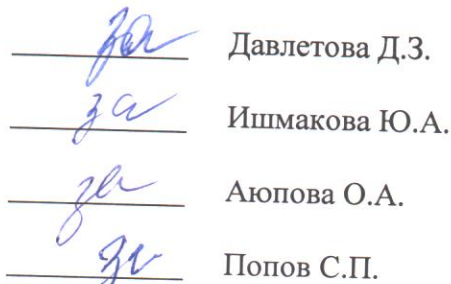 за Давлетова Д.З.
за Ишмакова Ю.А.
за Аюпова О.А.
за Попов С.П.